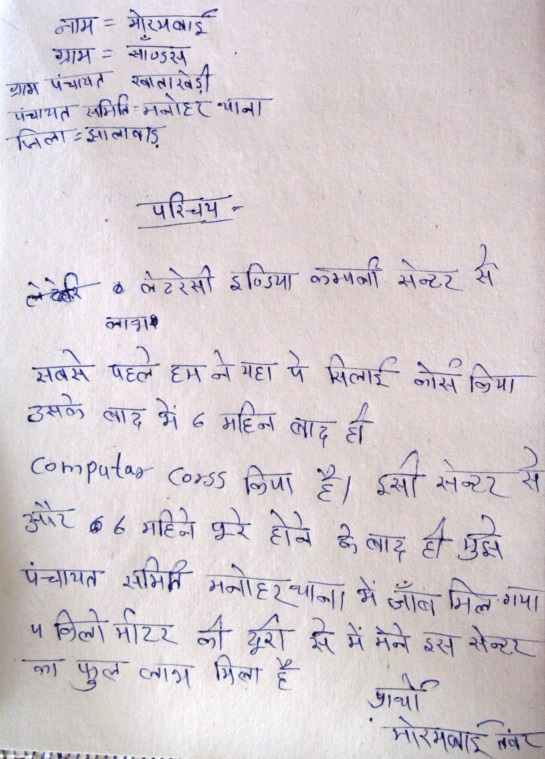 नाम = मोरमबाई
ग्राम = साँण्डस
ग्राम पंचायत खाताखेडी
पंचायत समिति = मनोहर थाना
जिला = झालावाड़
परिचय -
लेटरेसी इण्डिया कम्पनी सेन्टर से
लाभ
सबसे पहले हम ने यहा पे सिलाई कोर्स किया
उसके बाद में 6 महिने बाद ही
Computar Corss किया है। इसी सेन्टर से
और 6 महिने पुरे होने के बाद ही मुझे
पंचायत समिति मनोहर थाना में जाँब मिल गया
५ किलो मीटर की दूरी से में मेने इस सेन्टर
का फुल लाभ मिला है
प्रार्थी
मोरमबाई तंवर